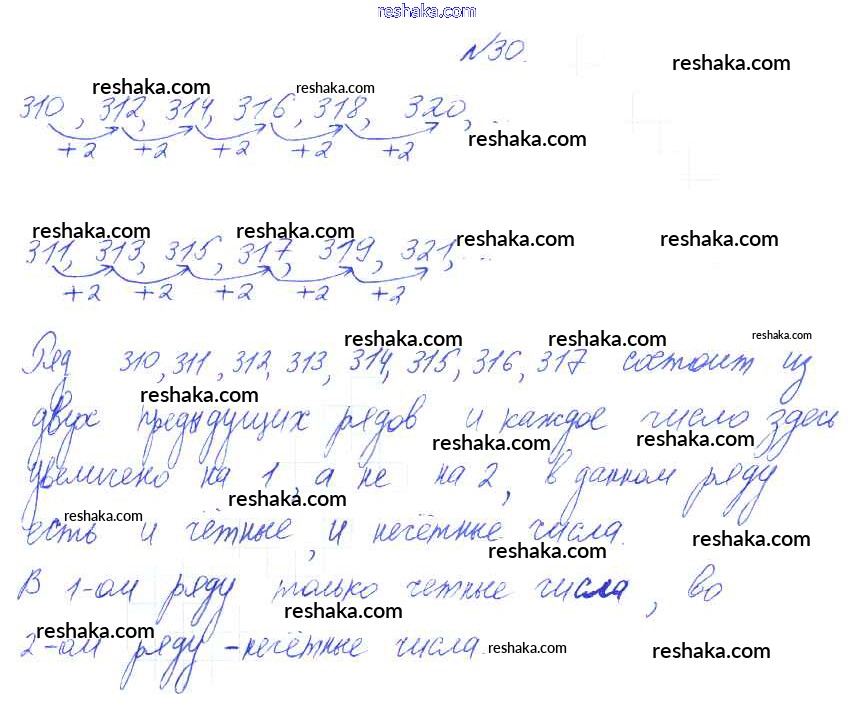 reshaka.com
№30.
reshaka.com
reshaka.com reshaka.com
310, 312, 314, 316, 318, 320, ...
reshaka.com
+2 +2 +2 +2 +2
reshaka.com reshaka.com reshaka.com reshaka.com
311, 313, 315, 317, 319, 321, ...
+2 +2 +2 +2 +2
reshaka.com reshaka.com reshaka.com
Ряд 310, 311, 312, 313, 314, 315, 316, 317 состоит из
reshaka.com
двух предыдущих рядов и каждое число здесь
reshaka.com reshaka.com
увеличено на 1, а не на 2, в данном ряду
reshaka.com
reshaka.com
есть и чётные, и нечётные числа.
reshaka.com reshaka.com
В 1-ом ряду только четные числа, во
reshaka.com
reshaka.com
2-ом ряду - нечётные числа.
reshaka.com reshaka.com